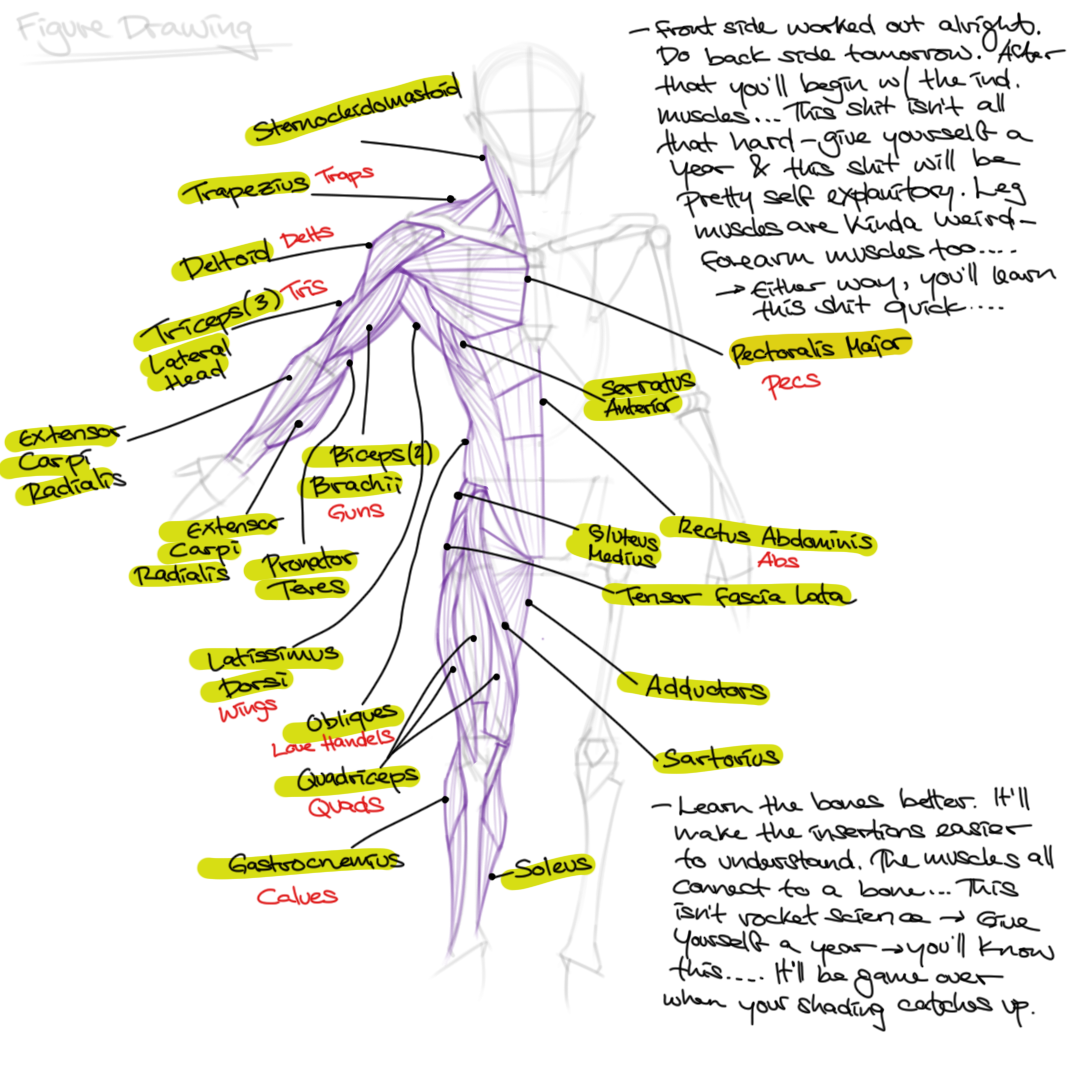 Figure Drawing
- Front side worked out alright.
Do back side tomorrow. After
that you'll begin w/ the ind.
muscles... This shit isn't all
that hard-give yourself a
year & this shit will be
pretty self explanitory. Leg
muscles are kinda weird-
forearm muscles too....
→ Either way, you'll learn
this shit quick....
Sternocleidomastoid
Trapezius Traps
Deltoid Delts
Triceps(3) Tris
Lateral
Head
Extensor
Carpi
Radialis
Extensor
Carpi
Radialis
Pronator
Teres
Biceps(2)
Brachii
Guns
Latissimus
Dorsi
Wings
Obliques
Love Handels
Quadriceps
Quads
Gastrocnemius
Calves
Pectoralis Major
Pecs
Serratus
Anterior
Rectus Abdominis
Abs
Gluteus
Medius
Tensor Fascia Lata
Adductors
Sartorius
Soleus
- Learn the bones better. It'll
make the insertions easier
to understand. The muscles all
connect to a bone... This
isn't rocket science → Give
yourself a year → you'll know
this.... It'll be game over
when your shading catches up.